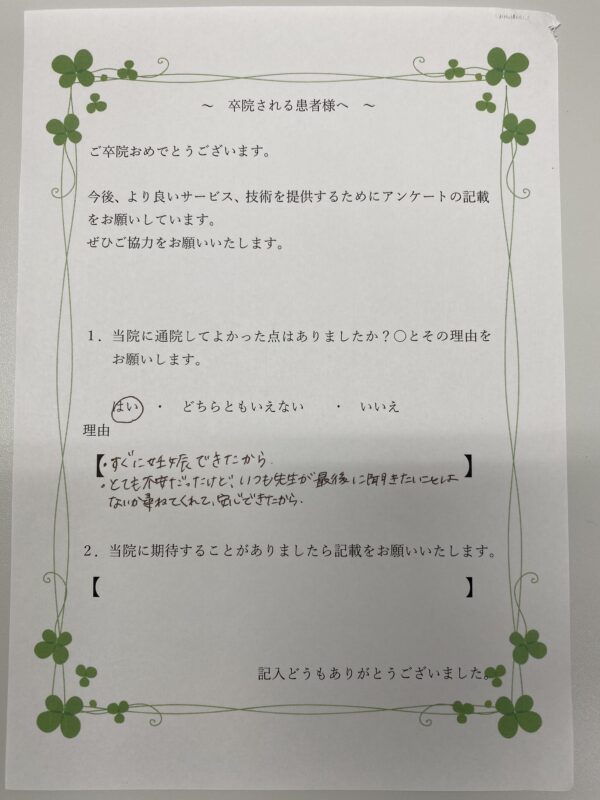 ～　卒院される患者様へ　～
ご卒院おめでとうございます。
今後、より良いサービス、技術を提供するためにアンケートの記載
をお願いしています。
ぜひご協力をお願いいたします。
１．当院に通院してよかった点はありましたか？〇とその理由を
お願いします。
はい　・　どちらともいえない　・　いいえ
理由
【・すぐに妊娠できたから　】
・とても不安だったけど、いつも先生が最後に聞きたいことは
ないか尋ねてくれて、安心できたから.
２．当院に期待することがありましたら記載をお願いいたします。
【　】
記入どうもありがとうございました。